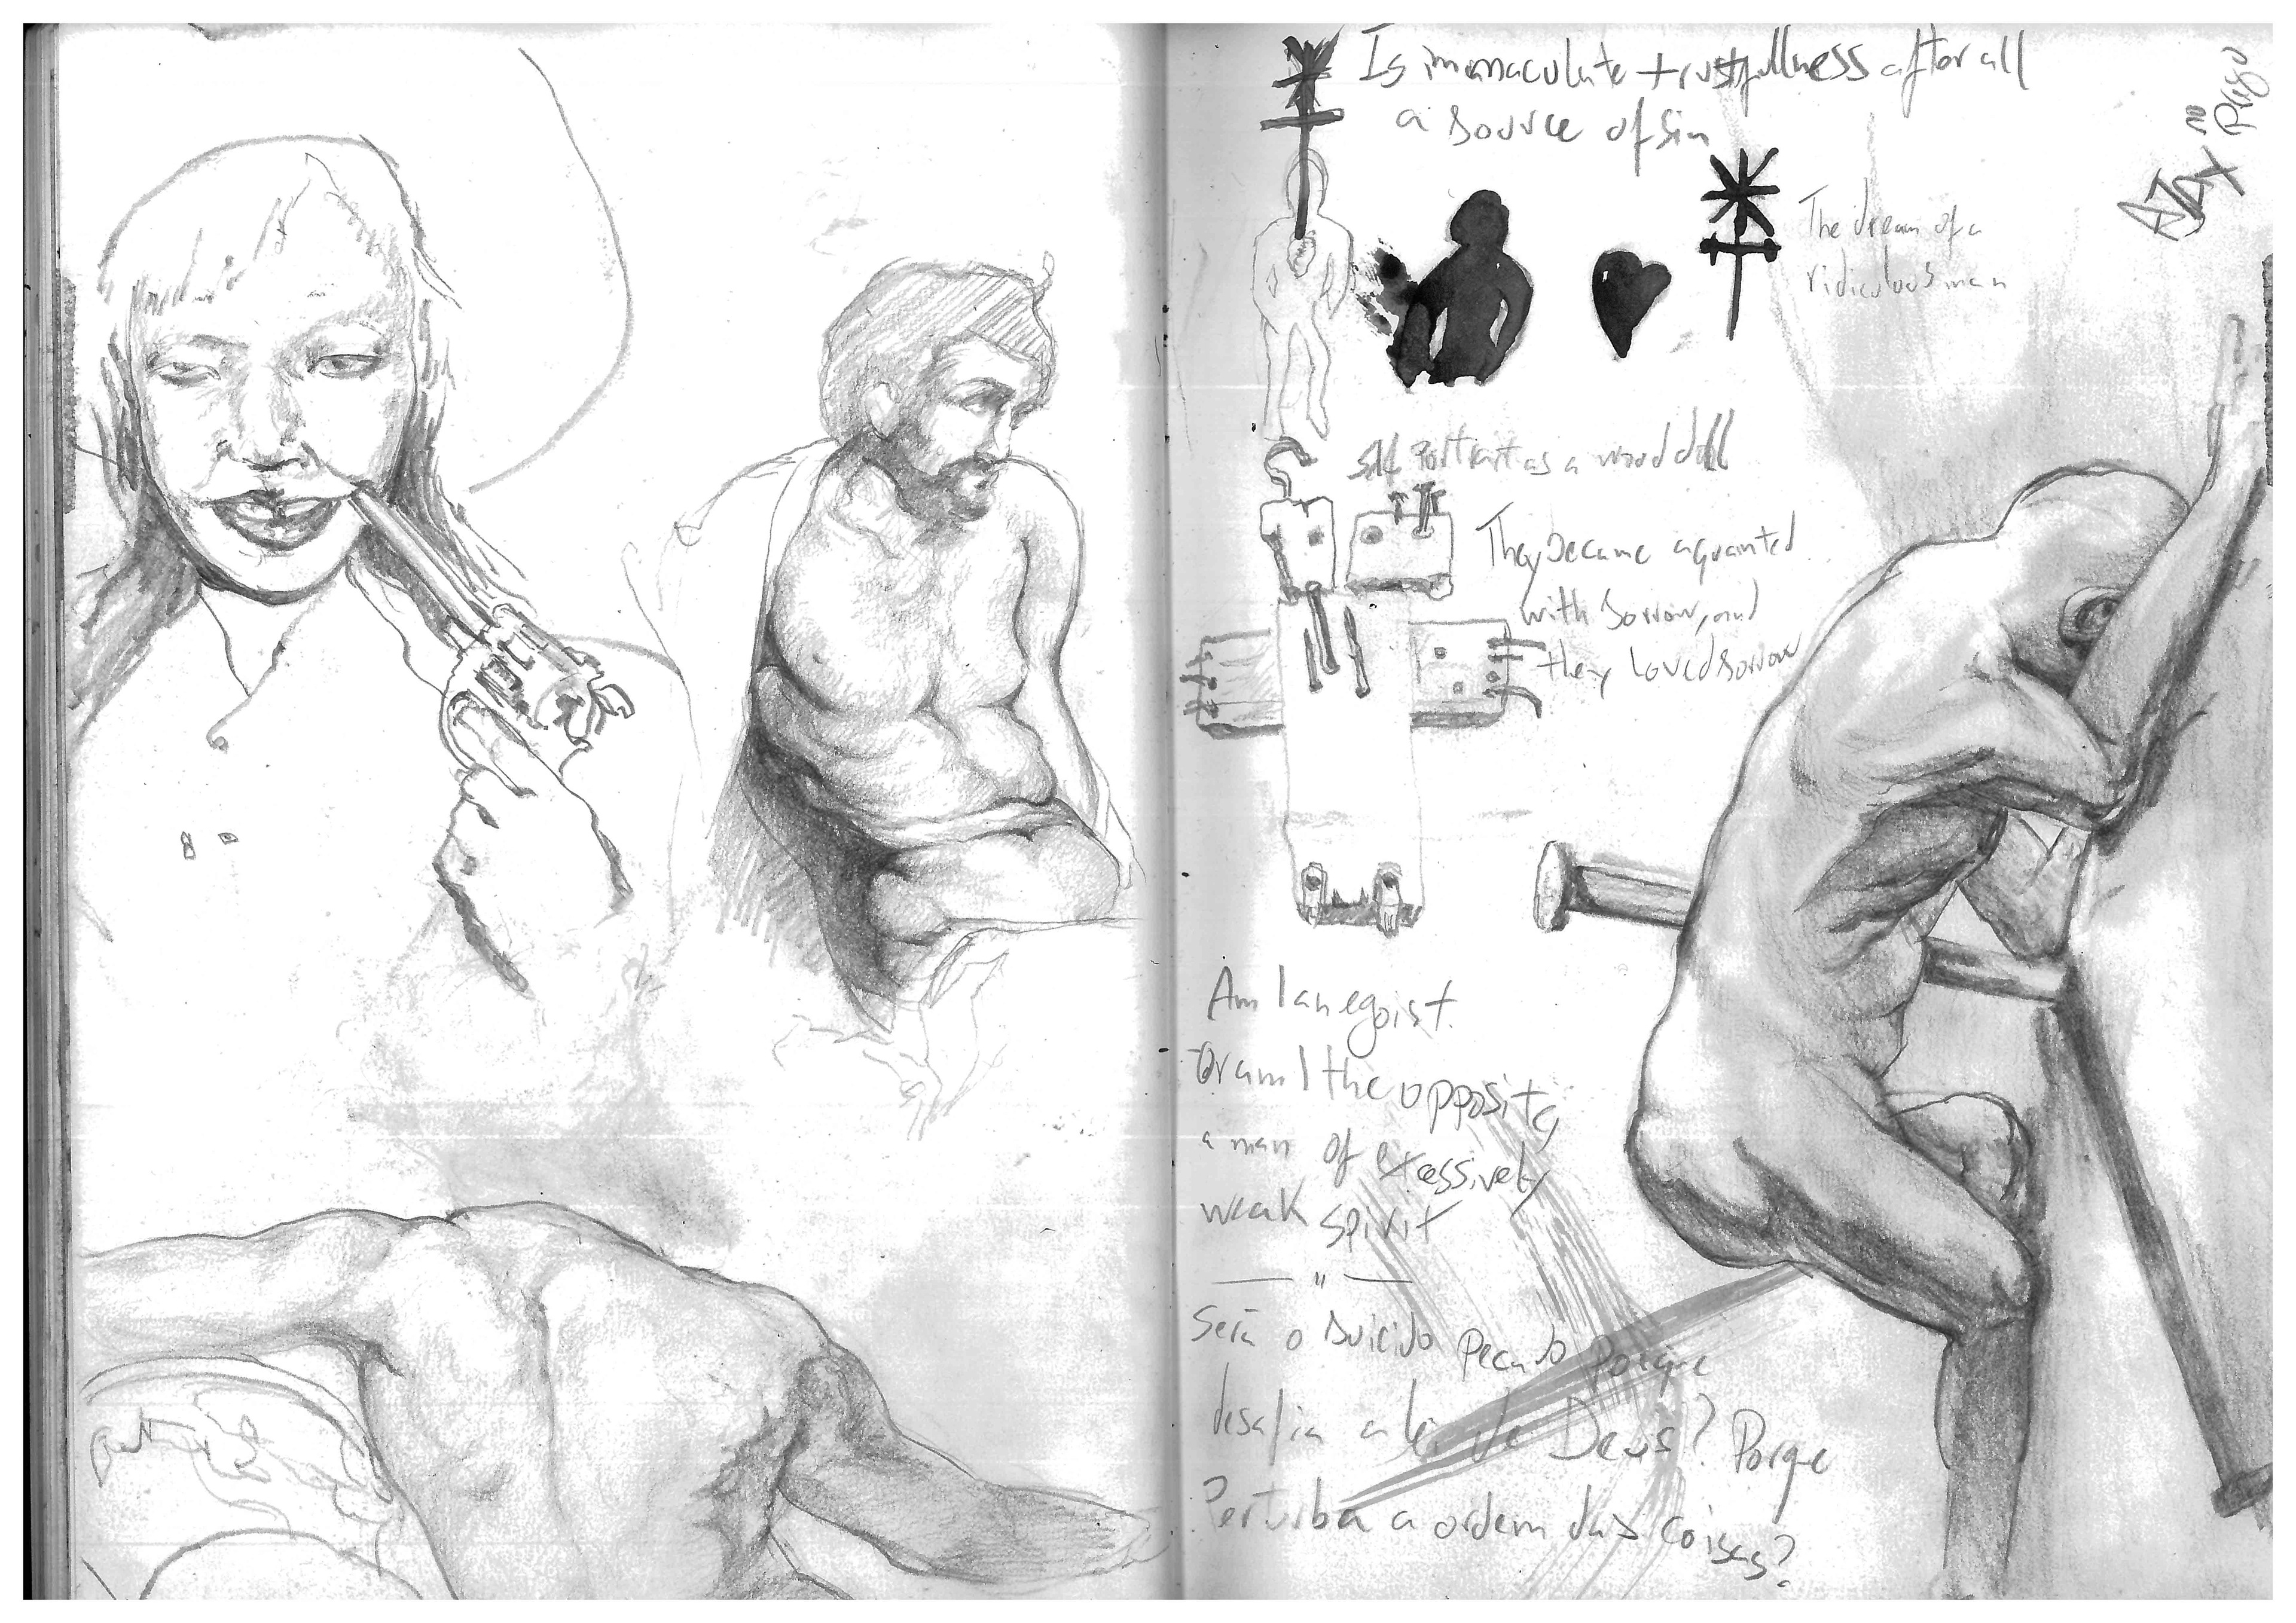 Is immaculate trustfullness after all
a source of sin
AJAX no
Prego
The dream of a
ridiculous man
self portrait as a wood doll
They became aquanted
with sorrow, and
they loved sorrow
Am I an egoist.
Or am I the opposite,
a man of excessively
weak spirit
— " —
Será o suicido pecado porque
desafia a lei de Deus? Porque
Perturba a ordem das coisas?